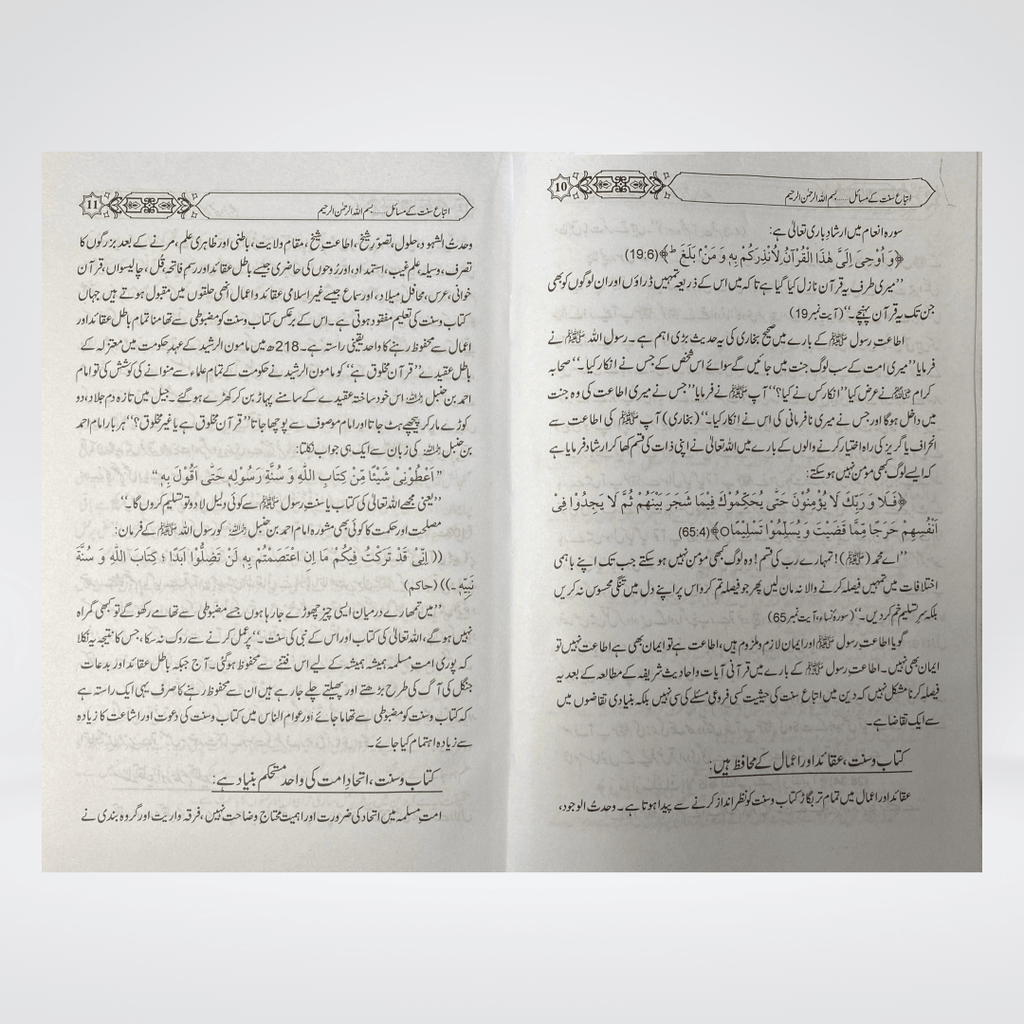 اتباع سنت کے مسائل ..... بسم اللہ الرحمٰن الرحیم
10
سورہ انعام میں ارشادِ باری تعالیٰ ہے:
﴿وَ اُوْحِیَ اِلَیَّ هٰذَا الْقُرْآنُ لِاُنْذِرَکُمْ بِهٖ وَ مَنْ ۢ بَلَغَ ط﴾(19:6)
’’میری طرف یہ قرآن نازل کیا گیا ہے تاکہ میں اس کے ذریعہ تمہیں ڈراؤں اور ان لوگوں کو بھی
جن تک یہ قرآن پہنچے۔‘‘(آیت نمبر 19)
اطاعتِ رسول ﷺ کے بارے میں صحیح بخاری کی یہ حدیث بڑی اہم ہے۔ رسول اللہ ﷺ نے
فرمایا ’’میری امت کے سب لوگ جنت میں جائیں گے سوائے اس شخص کے جس نے انکار کیا۔‘‘ صحابہ
کرام نے عرض کیا ’’انکار کس نے کیا؟‘‘ آپ ﷺ نے فرمایا ’’جس نے میری اطاعت کی وہ جنت
میں داخل ہوگا اور جس نے میری نافرمانی کی اس نے انکار کیا۔‘‘ (بخاری) آپ ﷺ کی اطاعت سے
انحراف یا گریز کی راہ اختیار کرنے والوں کے بارے میں اللہ تعالیٰ نے اپنی ذات کی قسم کھا کر ارشاد فرمایا ہے
کہ ایسے لوگ کبھی مومن نہیں ہوسکتے:
﴿فَـلَا وَ رَبِّکَ لَا یُؤْمِنُوْنَ حَتّٰی یُحَکِّمُوْکَ فِیْمَا شَجَرَ بَیْنَهُمْ ثُمَّ لَا یَجِدُوْا فِیْ
اَنْفُسِهِمْ حَرَجًا مِّمَّا قَضَیْتَ وَ یُسَلِّمُوْا تَسْلِیْمًاO﴾(65:4)
’’اے محمد (ﷺ)! تمہارے رب کی قسم! وہ لوگ کبھی مومن نہیں ہوسکتے جب تک اپنے باہمی
اختلافات میں تمہیں فیصلہ کرنے والا نہ مان لیں پھر جو فیصلہ تم کرو اس پر اپنے دل میں تنگی محسوس نہ کریں
بلکہ سر تسلیم خم کردیں۔‘‘(سورہ نساء، آیت نمبر 65)
گویا اطاعتِ رسول ﷺ اور ایمان لازم و ملزوم ہیں، اطاعت ہے تو ایمان بھی ہے اطاعت نہیں تو
ایمان بھی نہیں۔ اطاعتِ رسول ﷺ کے بارے میں قرآنی آیات و احادیث شریفہ کے مطالعہ کے بعد یہ
فیصلہ کرنا مشکل نہیں کہ دین میں اتباع سنت کی حیثیت کسی فروعی مسئلے کی سی نہیں بلکہ بنیادی تقاضوں میں
سے ایک تقاضا ہے۔
کتاب و سنت، عقائد اور اعمال کے محافظ ہیں:
عقائد اور اعمال میں تمام تر بگاڑ کتاب و سنت کو نظر انداز کرنے سے پیدا ہوتا ہے۔ وحدث الوجود،
اتباع سنت کے مسائل ..... بسم اللہ الرحمٰن الرحیم
11
وحدث الشہود، حلول، تصورِ شیخ، اطاعتِ شیخ، مقام ولایت، باطنی اور ظاہری علم، مرنے کے بعد بزرگوں کا
تصرف، وسیلہ، علم غیب، استمداد، اور رُوحوں کی حاضری جیسے باطل عقائد اور رسم فاتحہ، قُل، چالیسواں، قرآن
خوانی، عرس، محافل میلاد، اور سماع جیسے غیر اسلامی عقائد و اعمال انھی حلقوں میں مقبول ہوتے ہیں جہاں
کتاب و سنت کی تعلیم مفقود ہوتی ہے۔ اس کے برعکس کتاب و سنت کو مضبوطی سے تھامنا تمام باطل عقائد اور
اعمال سے محفوظ رہنے کا واحد یقینی راستہ ہے۔ 218ھ میں مامون الرشید کے عہدِ حکومت میں معتزلہ کے
باطل عقیدے ’’قرآن مخلوق ہے‘‘ کو مامون الرشید نے حکومت کے تمام علماء سے منوانے کی کوشش کی تو امام
احمد بن حنبل رحمہ اللہ اس خود ساختہ عقیدے کے سامنے پہاڑ بن کر کھڑے ہوگئے۔ جیل میں تازہ دم جلاد، دو
کوڑے مار کر پیچھے ہٹ جاتا اور امام موصوف سے پوچھا جاتا ’’قرآن مخلوق ہے یا غیر مخلوق؟‘‘ ہر بار امام احمد
بن حنبل رحمہ اللہ کی زبان سے ایک ہی جواب نکلتا:
’’اَعْطُوْنِیْ شَیْئًا مِّنْ کِتَابِ اللّٰهِ وَ سُنَّةِ رَسُوْلِهٖ حَتّٰی اَقُوْلَ بِهٖ‘‘
’’یعنی مجھے اللہ تعالیٰ کی کتاب یا سنت رسول ﷺ سے کوئی دلیل لا دو تو تسلیم کروں گا۔‘‘
مصلحت اور حکمت کا کوئی بھی مشورہ امام احمد بن حنبل رحمہ اللہ کو رسول اللہ ﷺ کے فرمان:
(( اِنِّیْ قَدْ تَرَکْتُ فِیْکُمْ مَا اِنِ اعْتَصَمْتُمْ بِهٖ لَنْ تَضِلُّوْا اَبَدًا ؛ کِتَابَ اللّٰهِ وَ سُنَّةَ
نَبِیِّهٖ ۔)) (حاکم)
’’میں تمھارے درمیان ایسی چیز چھوڑے جارہا ہوں جسے مضبوطی سے تھامے رکھو گے تو کبھی گمراہ
نہیں ہوگے، اللہ تعالیٰ کی کتاب اور اس کے نبی کی سنت۔‘‘ پر عمل کرنے سے روک نہ سکا، جس کا نتیجہ یہ نکلا
کہ پوری امتِ مسلمہ ہمیشہ ہمیشہ کے لیے اس فتنے سے محفوظ ہوگئی۔ آج جبکہ باطل عقائد اور بدعات
جنگل کی آگ کی طرح بڑھتے اور پھیلتے چلے جارہے ہیں ان سے محفوظ رہنے کا صرف یہی ایک راستہ ہے
کہ کتاب و سنت کو مضبوطی سے تھاما جائے اور عوام الناس میں کتاب و سنت کی دعوت اور اشاعت کا زیادہ
سے زیادہ اہتمام کیا جائے۔
کتاب و سنت، اتحادِ امت کی واحد مستحکم بنیاد ہے:
امتِ مسلمہ میں اتحاد کی ضرورت اور اہمیت محتاج وضاحت نہیں، فرقہ واریت اور گروہ بندی نے